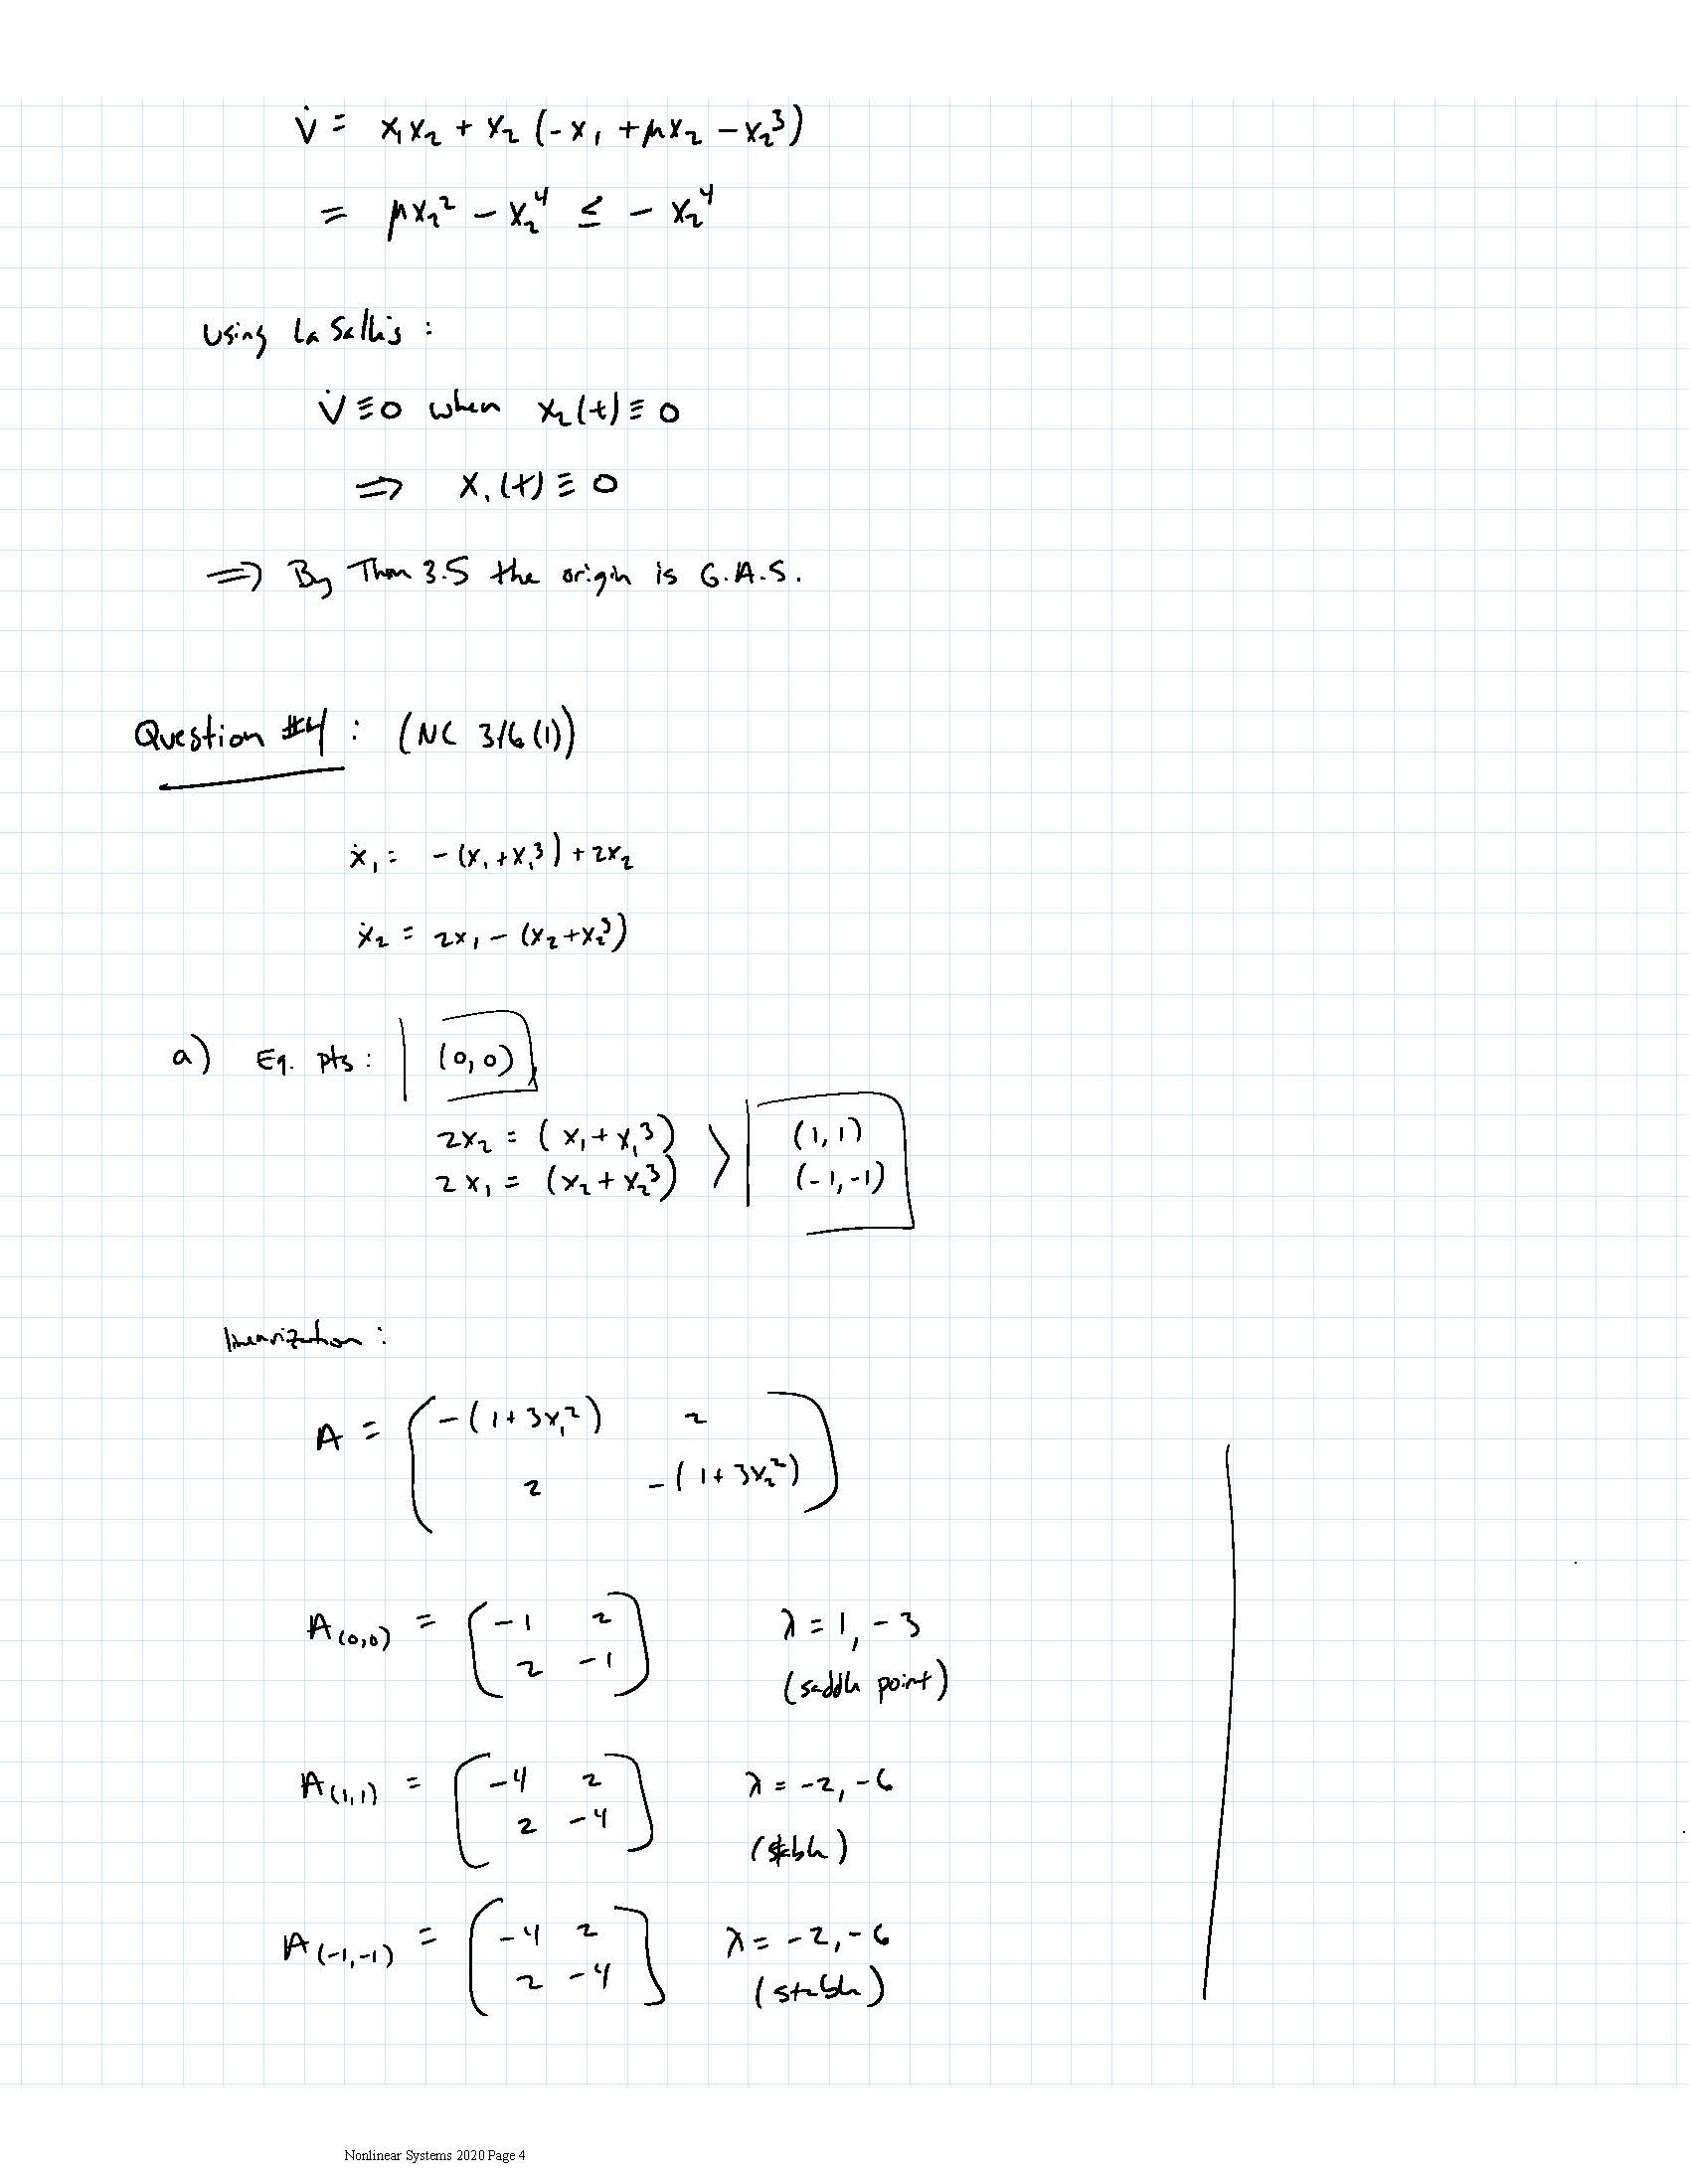 V̇ = x₁x₂ + x₂(-x₁ + μx₂ - x₂³)
= μx₂² - x₂⁴ ≤ - x₂⁴
Using LaSalle's :
V̇ ≡ 0 when x₂(t) ≡ 0
⇒ x₁(t) ≡ 0
⇒ By Thm 3.5 the origin is G.A.S.
Question #4 : (NC 3.16 (1))
ẋ₁ = -(x₁+x₁³) + 2x₂
ẋ₂ = 2x₁ - (x₂+x₂³)
a) Eq. pts : (0,0)
2x₂ = (x₁+x₁³) (1,1)
2x₁ = (x₂+x₂³) (-1,-1)
linearization :
A = ( -(1+3x₁²) 2
2 -(1+3x₂²) )
A(0,0) = ( -1 2 λ = 1, -3
2 -1 ) (saddle point)
A(1,1) = ( -4 2 λ = -2, -6
2 -4 ) (stable)
A(-1,-1) = ( -4 2 λ = -2, -6
2 -4 ) (stable)
Nonlinear Systems 2020 Page 4